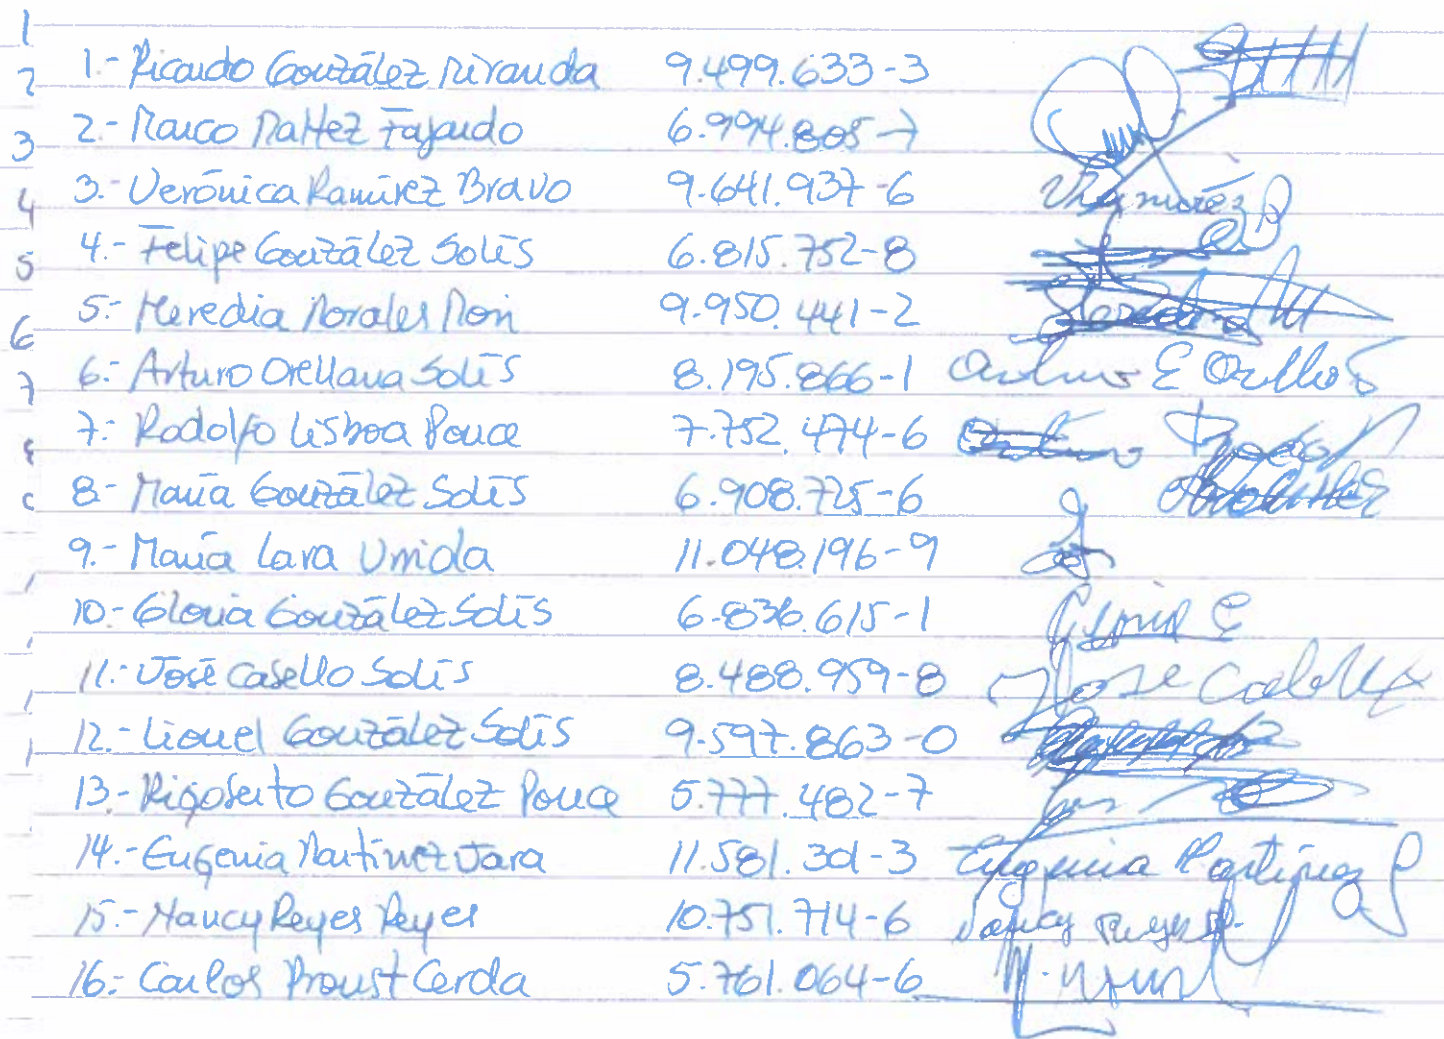 1.- Ricardo González Miranda 9.499.633-3
2.- Marco Mattez Fajardo 6.994.805-7
3.- Verónica Ramírez Bravo 9.641.937-6 VRamírez B
4.- Felipe González Solís 6.815.752-8
5.- Heredia Morales Moni 9.950.441-2
6.- Arturo Orellana Solís 8.195.866-1 Arturo E
7.- Rodolfo Lisboa Ponce 7.752.474-6
8.- María González Solís 6.908.725-6
9.- María Lara 11.048.196-9
10.- Gloria González Solís 6.836.615-1 Gloria G
11.- José Casello Solís 8.488.959-8 Jose
12.- Lionel González Solís 9.597.863-0
13.- Rigoberto González Ponce 5.777.482-7
14.- Eugenia Martínez Jara 11.581.301-3 Eugenia Martinez J
15.- Nancy Reyes Reyes 10.751.714-6 Nancy Reyes R.
16.- Carlos Proust Cerda 5.761.064-6